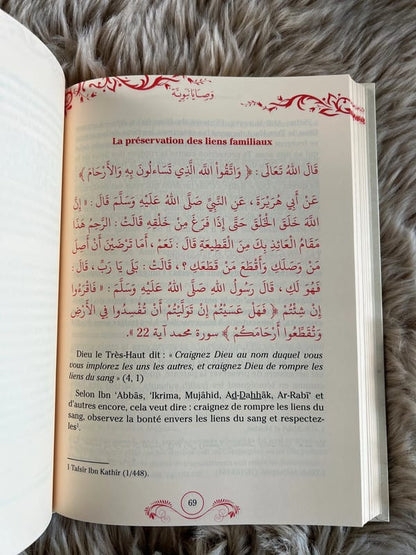 وَصَايَا نَبَوِيَّة
La préservation des liens familiaux
قَالَ اللهُ تَعَالَى : ﴿ وَاتَّقُوا اللَّهَ الَّذِي تَسَاءَلُونَ بِهِ وَالْأَرْحَامَ ﴾
عَنْ أَبِي هُرَيْرَةَ، عَنِ النَّبِيِّ صَلَّى اللهُ عَلَيْهِ وَسَلَّمَ قَالَ : « إِنَّ
اللهَ خَلَقَ الْخَلْقَ حَتَّى إِذَا فَرَغَ مِنْ خَلْقِهِ قَالَتْ : الرَّحِمُ هَذَا
مَقَامُ الْعَائِذِ بِكَ مِنَ الْقَطِيعَةِ قَالَ : نَعَمْ، أَمَا تَرْضَيْنَ أَنْ أَصِلَ
مَنْ وَصَلَكِ وَأَقْطَعَ مَنْ قَطَعَكِ ؟ ، قَالَتْ : بَلَى يَا رَبِّ ، قَالَ :
فَهُوَ لَكِ ، قَالَ رَسُولُ اللهِ صَلَّى اللهُ عَلَيْهِ وَسَلَّمَ : « فَاقْرَءُوا
إِنْ شِئْتُمْ ﴿ فَهَلْ عَسَيْتُمْ إِنْ تَوَلَّيْتُمْ أَنْ تُفْسِدُوا فِي الْأَرْضِ
وَتُقَطِّعُوا أَرْحَامَكُمْ ﴾ سورة محمد آية 22 ».
Dieu le Très-Haut dit : « Craignez Dieu au nom duquel vous
vous implorez les uns les autres, et craignez Dieu de rompre les
liens du sang » (4, 1)
Selon Ibn ‘Abbâs, ‘Ikrima, Mujâhid, Ad-Dahhâk, Ar-Rabî‘ et
d’autres encore, cela veut dire : craignez de rompre les liens du
sang, observez la bonté envers les liens du sang et respectez-
les¹.
1 Tafsîr Ibn Kathîr (1/448).
69